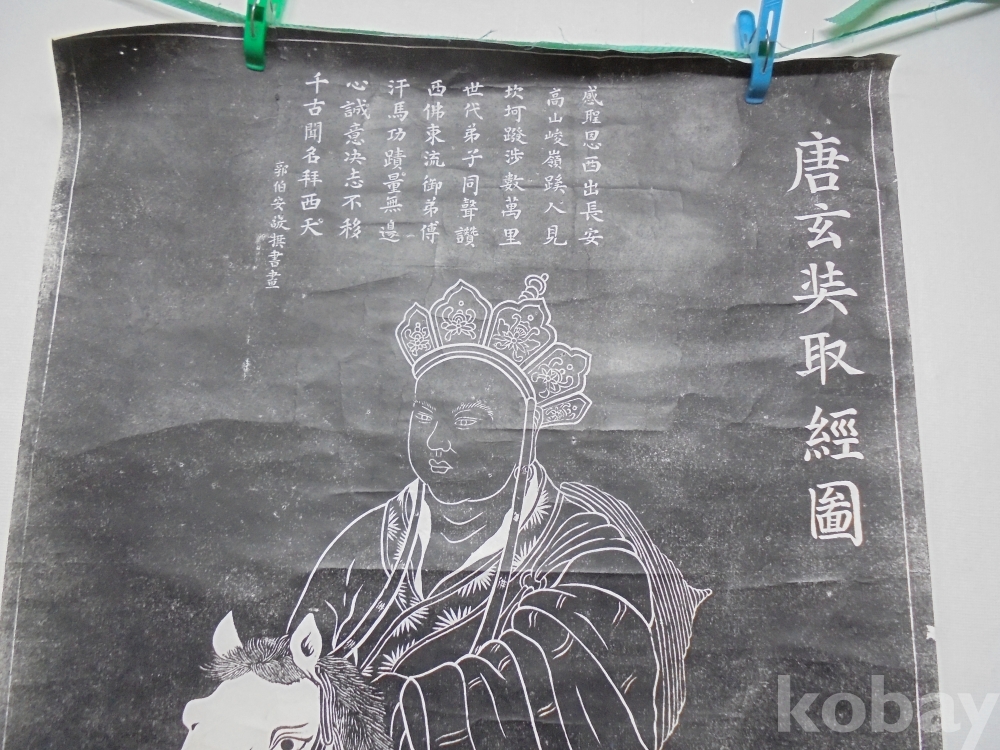 唐玄奘取經圖
感聖恩西出長安
高山峻嶺蹊人見
坎坷蹤涉數萬里
世代弟子同聲讚
西佛東流御弟傳
汗馬功蹟量無邊
心誠意決志不移
千古聞名拜西天
郭伯安敬撰書畫
kobay